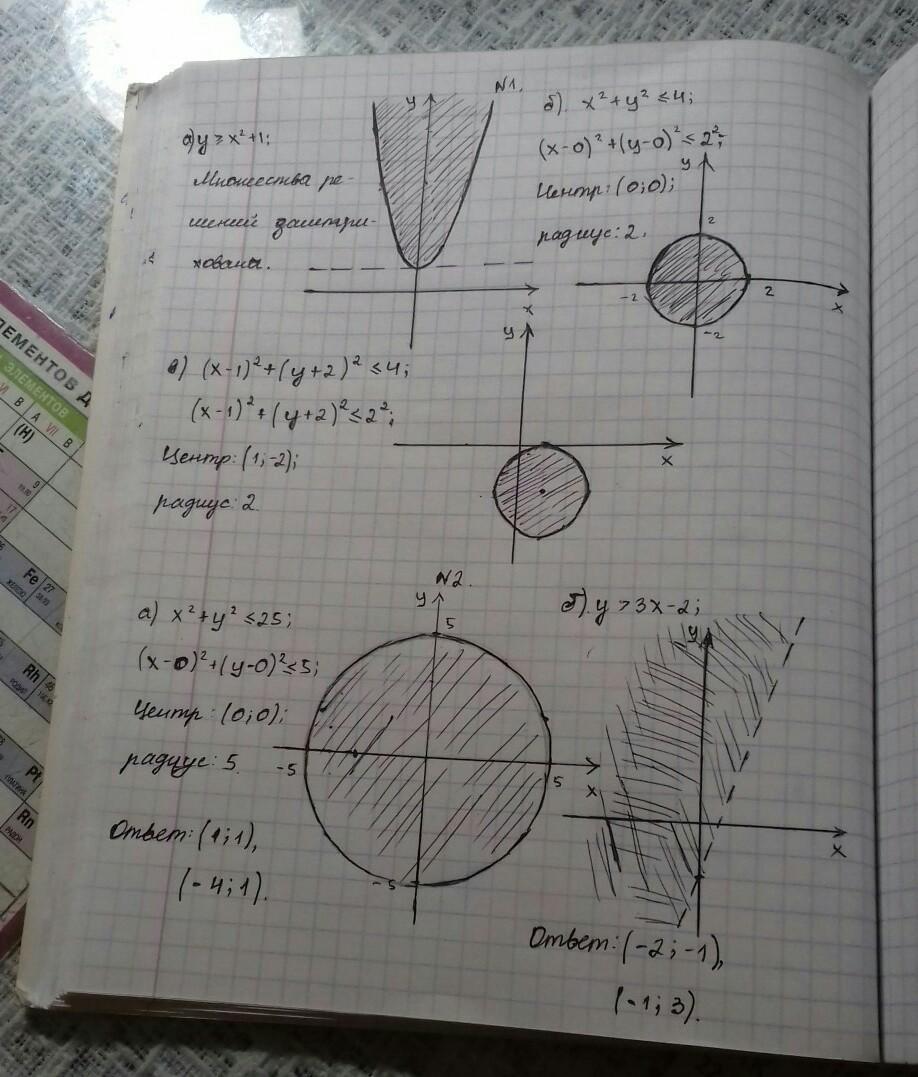 N1.
а) y ≥ x²+1;
Множества ре-
шений заштри-
хованы.
y
x
б). x²+y² ≤ 4;
(x-0)²+(y-0)² ≤ 2²;
Центр: (0;0);
радиус: 2.
y
2
-2
2
x
-2
в) (x-1)²+(y+2)² ≤ 4;
(x-1)²+(y+2)² ≤ 2²;
Центр: (1;-2);
радиус: 2.
y
x
N2.
а) x²+y² ≤ 25;
(x-0)²+(y-0)² ≤ 5;
Центр: (0;0);
радиус: 5.
Ответ: (1;1),
(-4;1).
y
5
-5
5
x
-5
б). y > 3x-2;
y
x
Ответ: (-2;-1),
(-1;3).
ЛЕМЕНТОВ Д
ЭЛЕМЕНТОВ
VI В А VII В
(H)
9
17
Fe 27
Rh 45
Pt
ПЛАТИНА
Rn
РАДОН